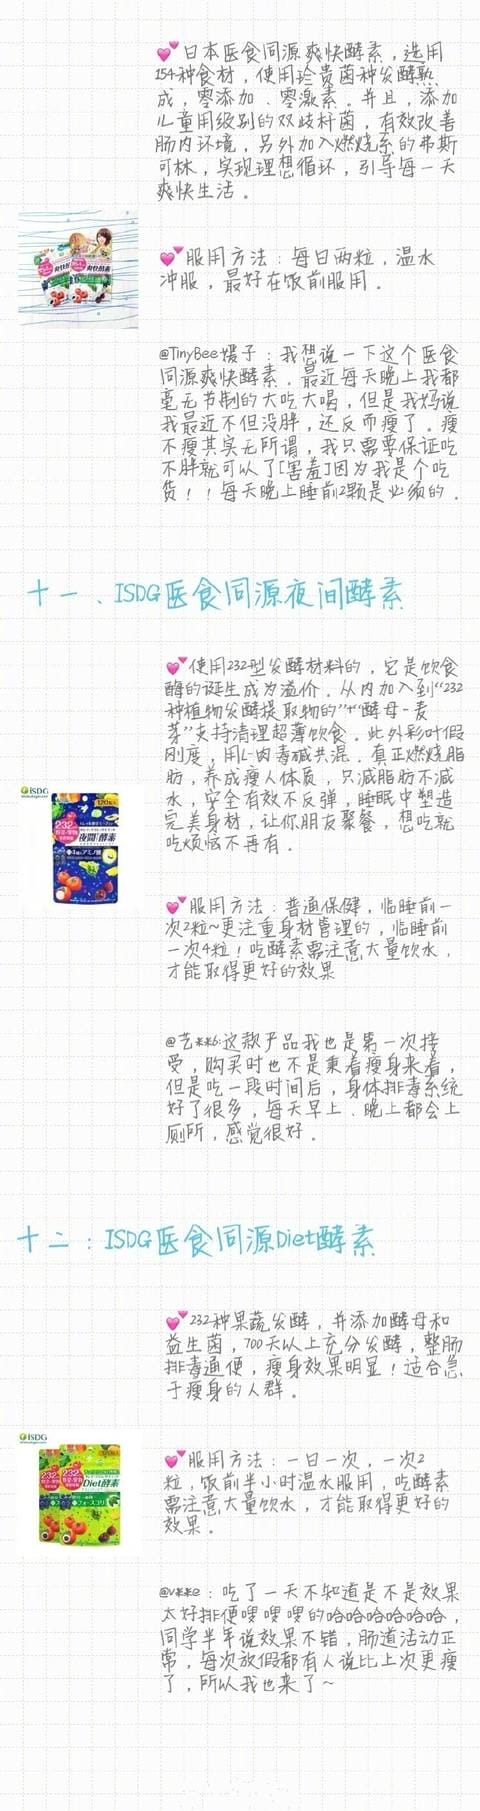 💕日本医食同源爽快酵素，选用
154种食材，使用珍贵菌种发酵熟
成，零添加、零激素。并且，添加
儿童用级别的双歧杆菌，有效改善
肠内环境，另外加入燃烧系的弗斯
可林，实现理想循环，引导每一天
爽快生活。
💕服用方法：每日两粒，温水
冲服，最好在饭前服用。
@TinyBee嫚子：我想说一下这个医食
同源爽快酵素．最近每天晚上我都
毫无节制的大吃大喝，但是我妈说
我最近不但没胖，还反而瘦了。瘦
不瘦其实无所谓，我只需要保证吃
不胖就可以了[害羞]因为我是个吃
货！！每天晚上睡前2颗是必须的．
十一、ISDG医食同源夜间酵素
💕使用232型发酵材料的，它是饮食
酶的诞生成为溢价．从内加入到“232
种植物发酵提取物的”+“酵母-麦
芽”支持清理超薄饮食。此外彩叶假
刚度，用L-肉毒碱共混．真正燃烧脂
肪，养成瘦人体质，只减脂肪不减
水，安全有效不反弹，睡眠中塑造
完美身材，让你朋友聚餐，想吃就
吃烦恼不再有．
ISDG
120粒
232
夜間酵素
💕服用方法：普通保健，临睡前一
次2粒~更注重身材管理的，临睡前
一次4粒！吃酵素需注意大量饮水，
才能取得更好的效果
@艺**6:这款产品我也是第一次接
受，购买时也不是秉着瘦身来着，
但是吃一段时间后，身体排毒系统
好了很多，每天早上、晚上都会上
厕所，感觉很好。
十二：ISDG医食同源Diet酵素
💕232种果蔬发酵，并添加酵母和
益生菌，700天以上充分发酵，整肠
排毒通便，瘦身效果明显！适合急
于瘦身的人群。
ISDG
232
232
Diet酵素
💕服用方法：一日一次，一次2
粒，饭前半小时温水服用，吃酵素
需注意大量饮水，才能取得更好的
效果。
@v**e：吃了一天不知道是不是效果
太好排便嗖嗖嗖的哈哈哈哈哈哈，
同学半年说效果不错，肠道活动正
常，每次放假都有人说比上次更瘦
了，所以我也来了~